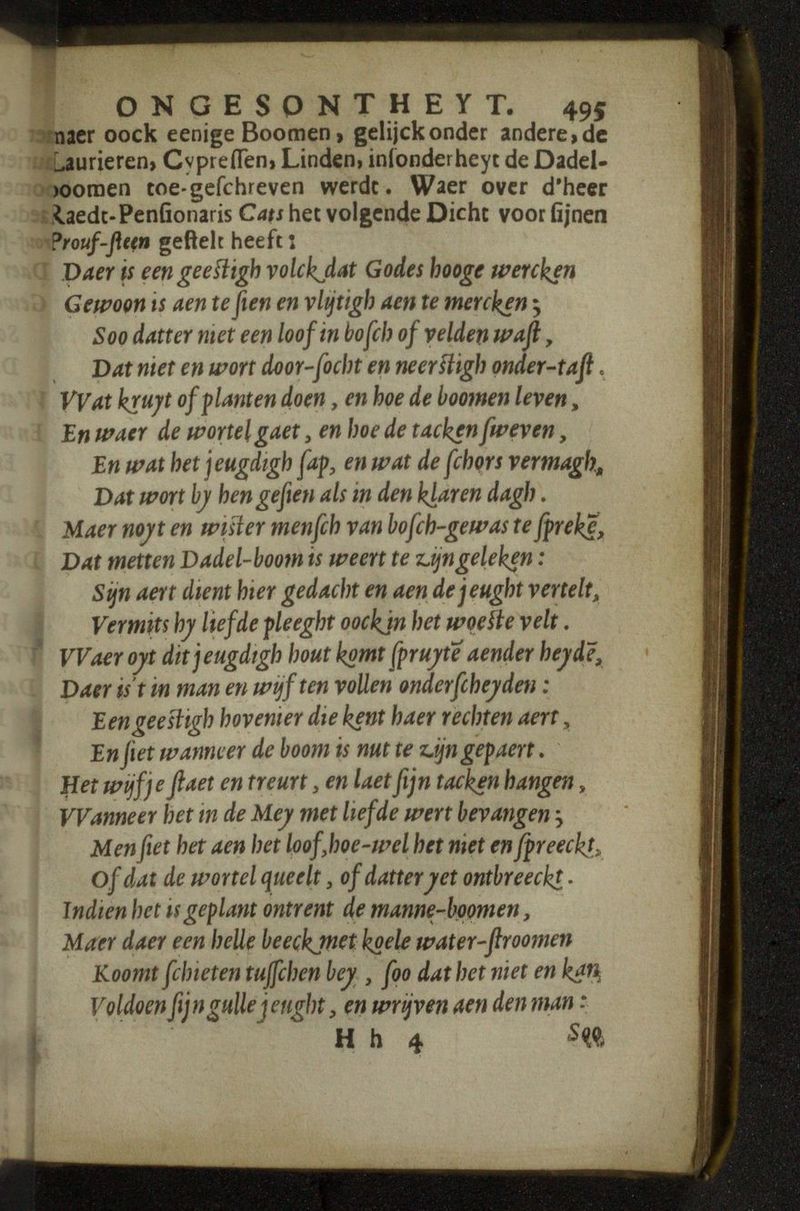 ONGESONTHEYT. 495
naer oock eenige Boomen, gelijck onder andere, de
Laurieren, Cypreſſen, Linden, inſonderheyt de Dadel-
boomen toe-geſchreven werdt. Waer over d'heer
Raedt-Penſionaris Cats het volgende Dicht voor ſijnen
Prouf-ſteen geſtelt heeft:
Daer is een geeſtigh volck dat Godes hooge wercken
Gewoon is aen te ſien en vlijtigh aen te mercken;
Soo datter niet een loof in boſch of velden waſt,
Dat niet en wort door-ſocht en neerſtigh onder-taſt.
VVat kruyt of planten doen, en hoe de boomen leven,
En waer de wortel gaet, en hoe de tacken ſweven,
En wat het jeugdigh ſap, en wat de ſchors vermagh,
Dat wort by hen geſien als in den klaren dagh.
Maer noyt en wiſter menſch van boſch-gewas te ſprekē,
Dat metten Dadel-boom is weert te zijn geleken:
Sijn aert dient hier gedacht en aen de jeught vertelt,
Vermits hy liefde pleeght oock in het woeſte velt.
VVaer oyt dit jeugdigh hout komt ſpruytē aender heydē,
Daer is't in man en wijf ten vollen onderſcheyden:
Een geeſtigh hovenier die kent haer rechten aert,
En ſiet wanneer de boom is nut te zijn gepaert.
Het wijfje ſtaet en treurt, en laet ſijn tacken hangen,
VVanneer het in de Mey met liefde wert bevangen;
Men ſiet het aen het loof, hoe-wel het niet en ſpreeckt,
Of dat de wortel queelt, of datter yet ontbreeckt.
Indien het is geplant ontrent de manne-boomen,
Maer daer een helle beeck met koele water-ſtroomen
Koomt ſchieten tuſſchen bey, ſoo dat het niet en kan
Voldoen ſijn gulle jeught, en wrijven aen den man:
H h 4 Soo